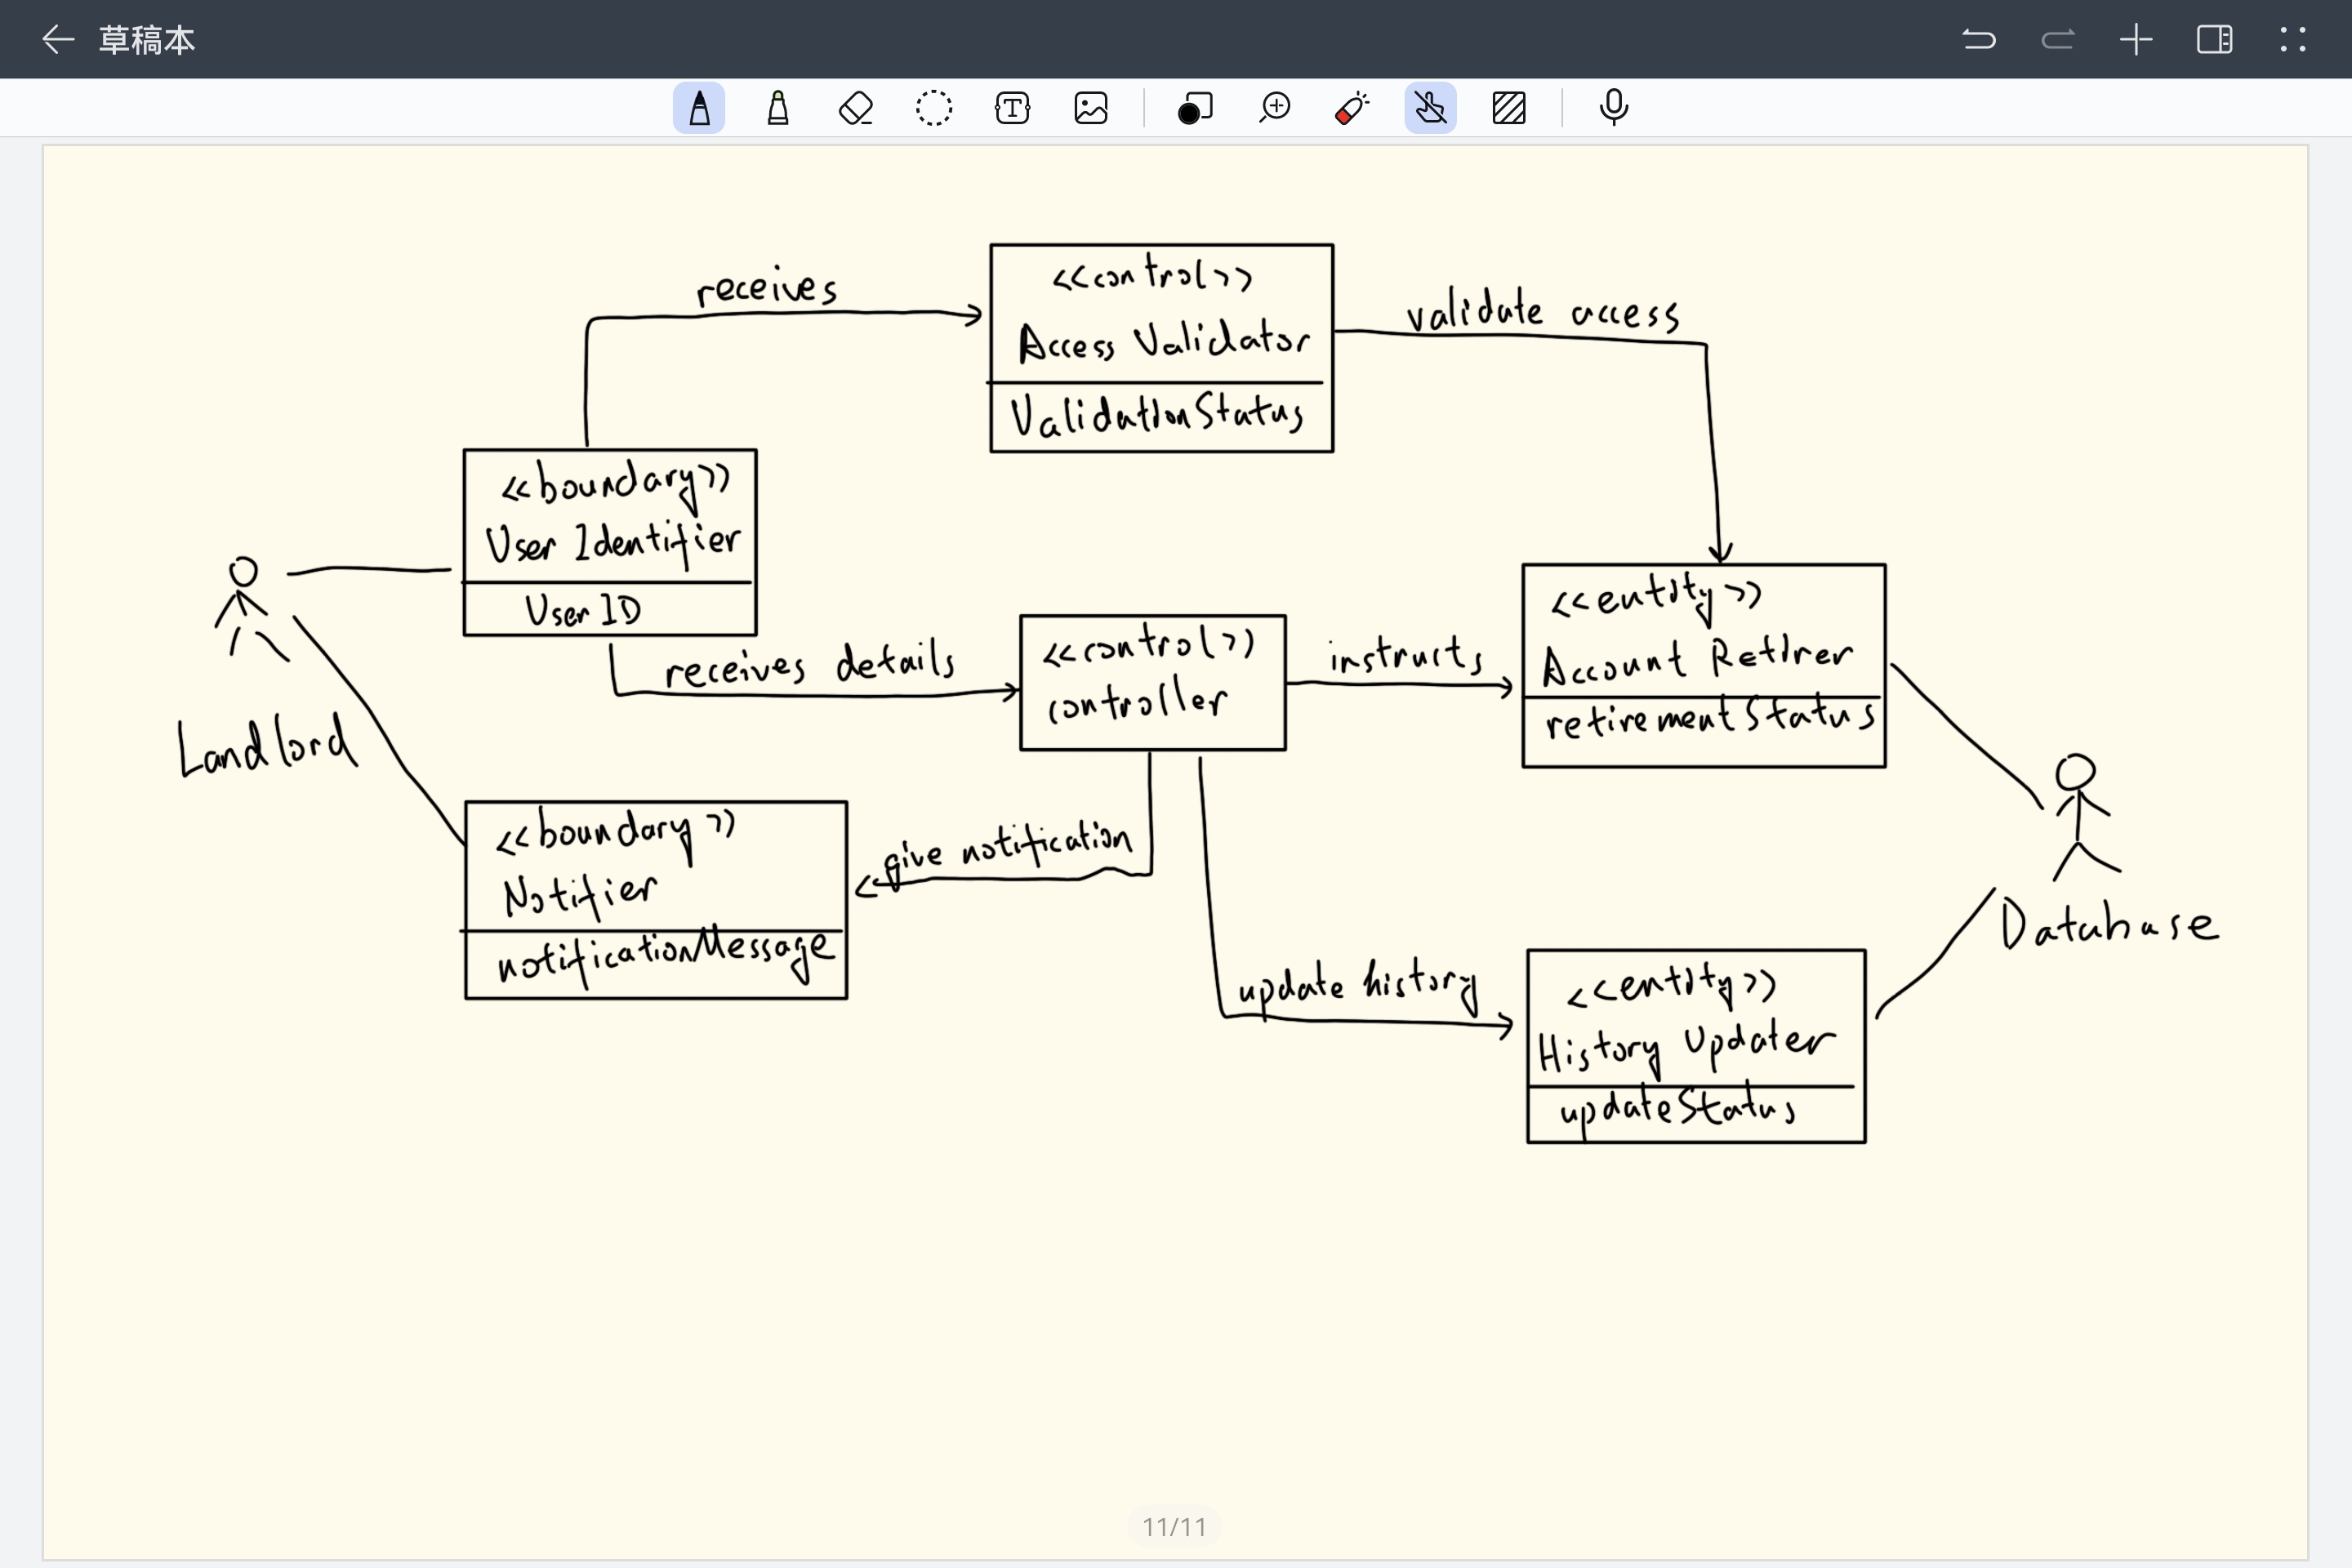 草稿本
receives
<<control>>
Access Validator
ValidationStatus
validate access
<<boundary>>
User Identifier
User ID
Landlord
receives details
<<control>>
controller
instructs
<<entity>>
Account Retirer
retirementStatus
Database
<<boundary>>
Notifier
notificationMessage
give notification
update history
<<entity>>
History Updater
updateStatus
11/11